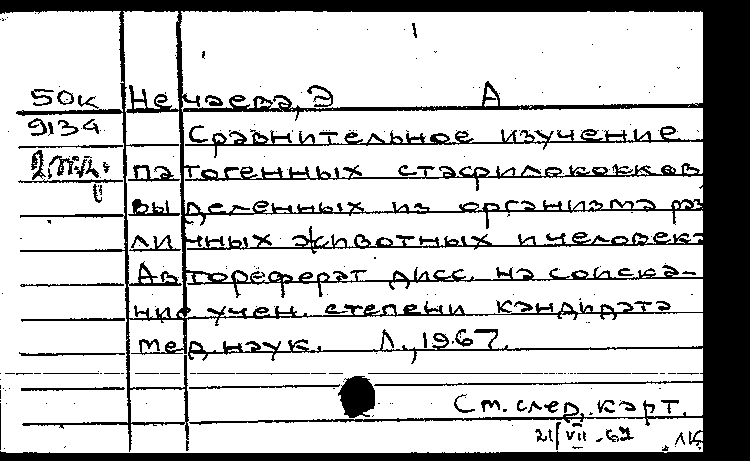 50к Нечаева, Э А
9134 Сравнительное изучение
патогенных стафилококков
выделенных из организма раз
личных животных и человека
Автореферат дисс. на соиска-
ние учен. степени кандидата
мед. наук. Л., 1967.
См. след. карт.
21/VII-67